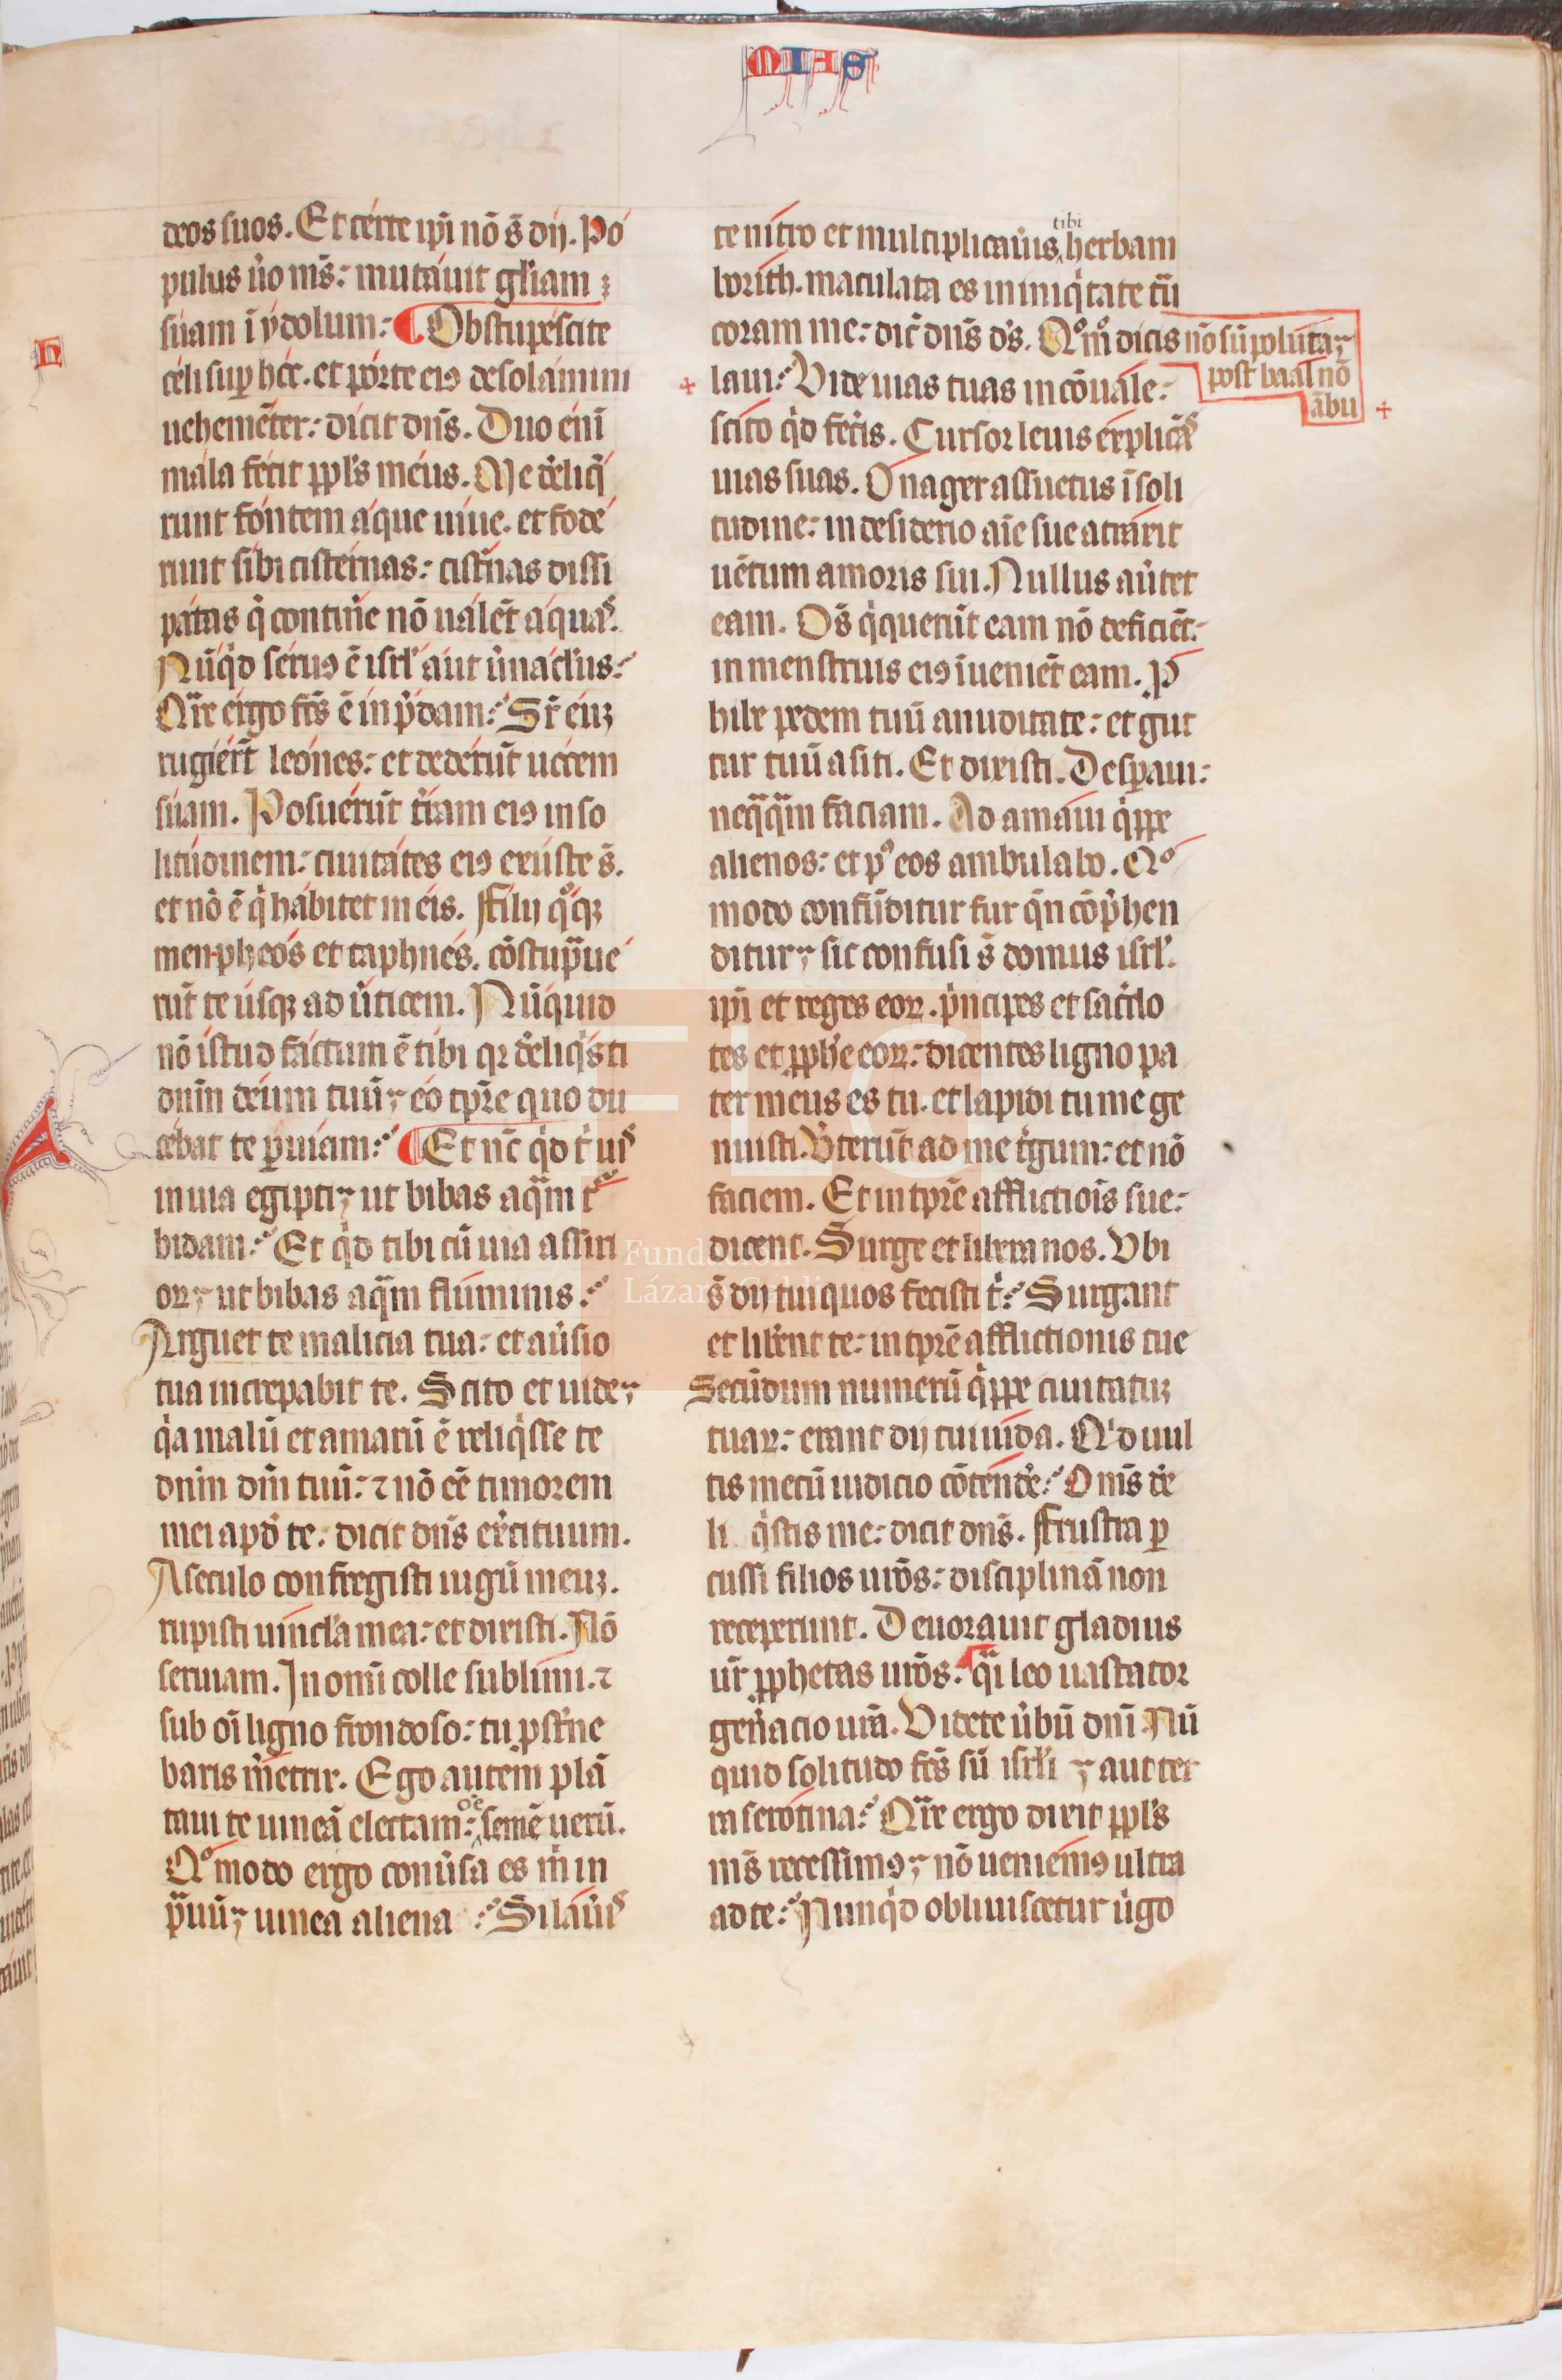 MIAS
deos suos. Et certe ip̄i nō s̄ dij. Po
pulus ůo m̄s: mutauit gl'iam
suam ī ydolum: Obstupescite
celi sup hec. et porte ei9 desolamini
uehemēter: dicit dn̄s. Duo enī
mala fecit ppl's meus. Me dēliq̄
runt fontem aque uiue. et fode
runt sibi cisternas: cist'nas dissi
patas q̄ contin'e nō ualēt aquas.
Nūq'd seru9 ē isrl' aut ůnacl'us:
Qr̄e ergo fc̄s ē in p̄dam: Sr̄ euʒ
rugier̄t leones: et dederūt uocem
suam. Posuerūt t'ram ei9 in so
litudinem: ciuitates ei9 exuste s̄.
et nō ē q' habitet in eis. Filij q°qʒ
menpheos et taphnes. cōstup̄ue
rūt te usqʒ ad ůticem. Nūquid
nō istud factum ē tibi qꝛ dēliq'sti
dn̄m deum tuū; eo tp̄re quo du
cebat te p uiam: Et nc̄ q'd t' uis
in uia egipti; ut bibas aq̄m t'
bidam: Et q'd tibi cū uia assiri
oꝝ; ut bibas aq̄m fluminis:
Arguet te malicia tua: et aůsio
tua increpabit te. Scito et uide;
q'a malū et amarū ē reliq'sse te
dn̄m dm̄ tuū: ⁊ nō eē timorem
mei apd' te: dicit dn̄s ex'cituum.
A seculo confregisti iugū meuʒ.
rupisti uincl'a mea: et dixisti. Nō
seruiam. In omī colle sublimi. ⁊
sub oī ligno frondoso: tu p̱st'ne
baris m'etrix. Ego autem plā
taui te uineā electam: oē semē uerū.
Q°modo ergo conůsa es m̄ in
p̄uū; uinea aliena: Si lau'is
H
te nitro et multiplicau'is tibi herbam
borith. maculata es in iniq'tate tū
coram me: dic̄ dn̄s d's. Q°m° dicis nō sū poluta;
post baal nō
ābu +
+ laui: Vide uias tuas in cōualle:
scito q'd fec'is. Cursor leuis explicās
uias suas. Onager assuetus ī soli
tudine: in desiderio aīe sue atraxit
uētum amoris sui. Nullus aůtet
eam. Om̄s q' querūt eam nō deficiēt:
in menstruis ei9 īueniēt eam. P
hibe pedem tuū a nuditate: et gut
tur tuū a siti. Et dixisti. Desperaui:
neq̄q̄m faciam. Adamaui q'ppe
alienos: et p° eos ambulabo. Q°
modo confūditur fur q̄n cōp̄hen
ditur; sic confusi s̄ domus isrl'.
ip̄i et reges eoꝝ. p'ncipes et sac'do
tes et pph'e eoꝝ: dicentes ligno pa
ter meus es tu. et lapidi tu me ge
nuisti. V'terūt ad me t'gum: et nō
faciem. Et in tp̄re afflictiois sue:
dicent. Surge et libera nos. Vbi
s̄ dij tui quos fecisti t': Surgant
et lib'ent te: in tp̄re afflictionis tue
Secūdum numerū q'ppe ciuitatuʒ
tuaꝝ: erant dij tui iuda. Q'd uul
tis mecū iudicio cōtend'e: Om̄s de
li q'stis me: dicit dn̄s. Frustra p
cussi filios uros: disciplinā non
receperunt. Deuorauit gladius
ur̄ pphetas uros: q̄i leo uastator
gen'acio urā. Videte ůbū dn̄i Nū
quid solitudo fc̄s sū isrl'i; aut ter
ra serotina: Qr̄e ergo dixit ppl's
m̄s recessim9; nō ueniem9 ultra
ad te: Nunq'd obliuiscetur ůgo